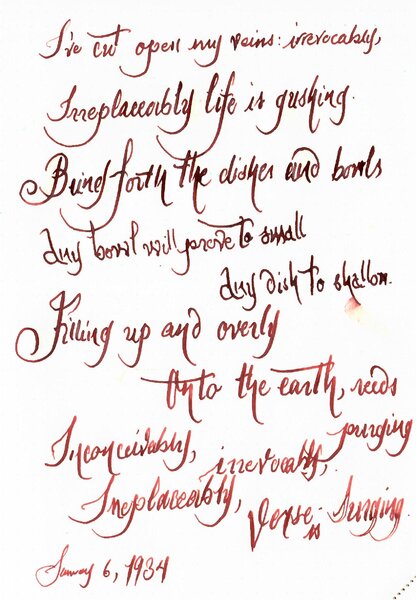 I've cut open my veins: irrevocably,
Irreplaceably life is gushing.
Bring forth the dishes and bowls
Any bowl will prove to small
Any dish to shallow.
Filling up and overly
Onto the earth, reeds
purging
Inconceivably, irrevocably,
Irreplaceably, Verse is Surging
January 6, 1934